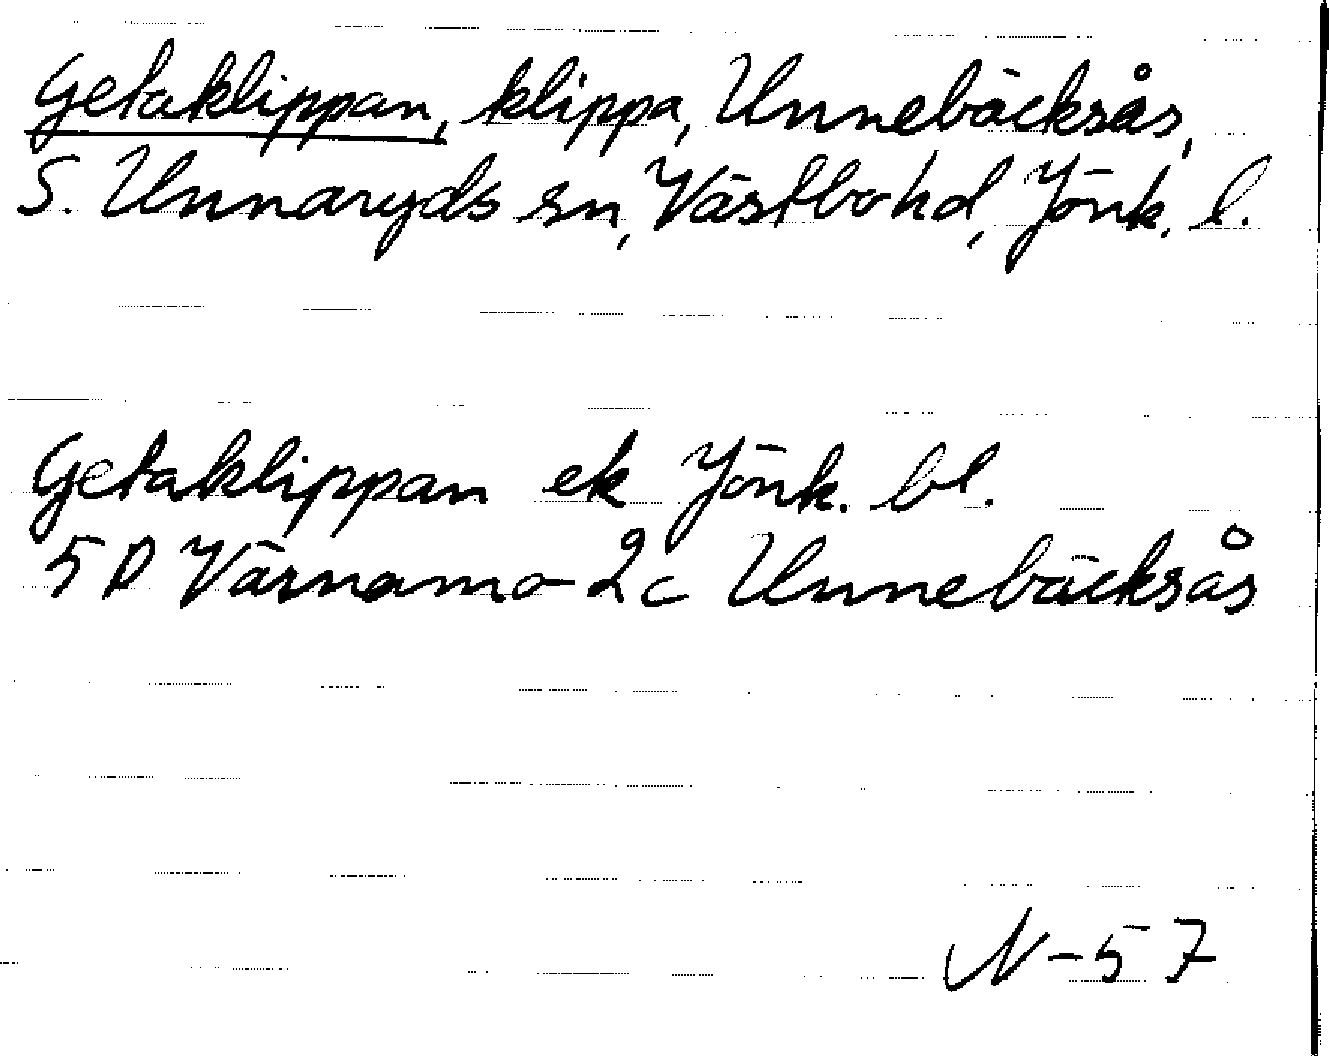 Getaklippan, klippa, Unnebäcksås,
S. Unnaryds sn, Västbo hd, Jönk. l.
Getaklippan ek Jönk. bl.
5 D Värnamo 2c Unnebäcksås
N-57